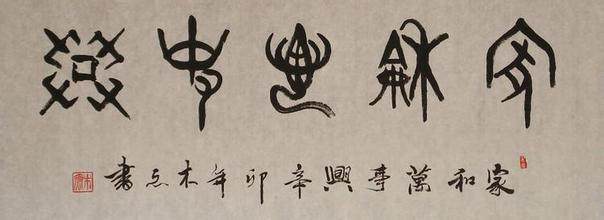 家龢萬事興
家和萬事興辛卯年木点書